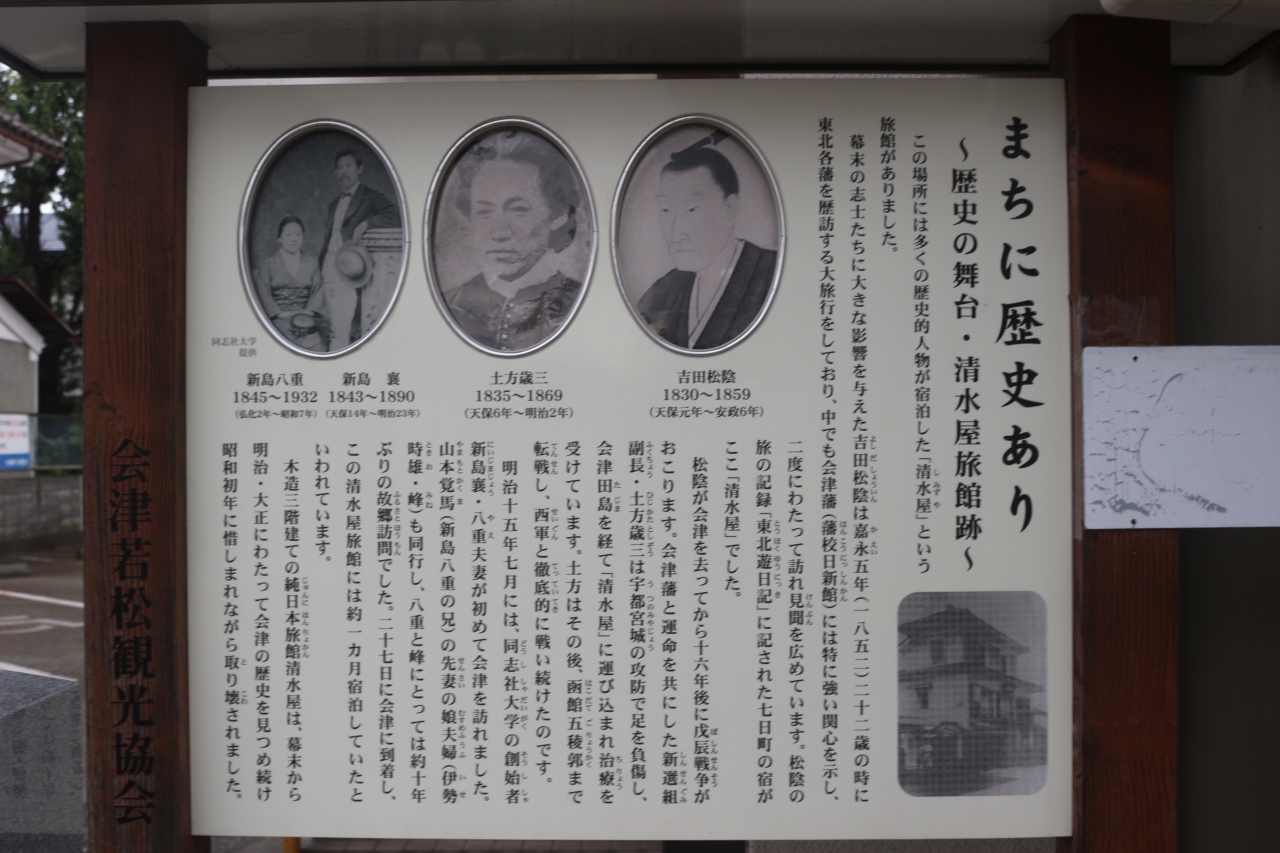 まちに歴史あり
～歴史の舞台・清水屋旅館跡～
この場所には多くの歴史的人物が宿泊した「清水屋」という
旅館がありました。
幕末の志士たちに大きな影響を与えた吉田松陰は嘉永五年（一八五二）二十二歳の時に
東北各藩を歴訪する大旅行をしており、中でも会津藩（藩校日新館）には特に強い関心を示し、
二度にわたって訪れ見聞を広めています。松陰の
旅の記録「東北遊日記」に記された七日町の宿が
ここ「清水屋」でした。
松陰が会津を去ってから十六年後に戊辰戦争が
おこります。会津藩と運命を共にした新選組
副長・土方歳三は宇都宮城の攻防で足を負傷し、
会津田島を経て「清水屋」に運び込まれ治療を
受けています。土方はその後、函館五稜郭まで
転戦し、西軍と徹底的に戦い続けたのです。
明治十五年七月には、同志社大学の創始者
新島襄・八重夫妻が初めて会津を訪れました。
山本覚馬（新島八重の兄）の先妻の娘夫婦（伊勢
時雄・峰）も同行し、八重と峰にとっては約十年
ぶりの故郷訪問でした。二十七日に会津に到着し、
この清水屋旅館には約一カ月宿泊していたと
いわれています。
木造三階建ての純日本旅館清水屋は、幕末から
明治・大正にわたって会津の歴史を見つめ続け
昭和初年に惜しまれながら取り壊されました。
吉田松陰
1830～1859
（天保元年～安政6年）
土方歳三
1835～1869
（天保6年～明治2年）
新島　襄
1843～1890
（天保14年～明治23年）
新島八重
1845～1932
（弘化2年～昭和7年）
同志社大学
提供
会津若松観光協会